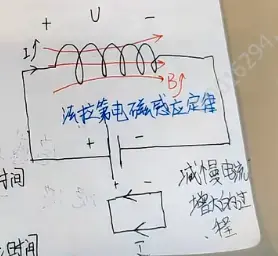 + U -
I↑
B↑
法拉第电磁感应定律
+ -
时间
+ -
减慢电流
增大的过
程
I
时间